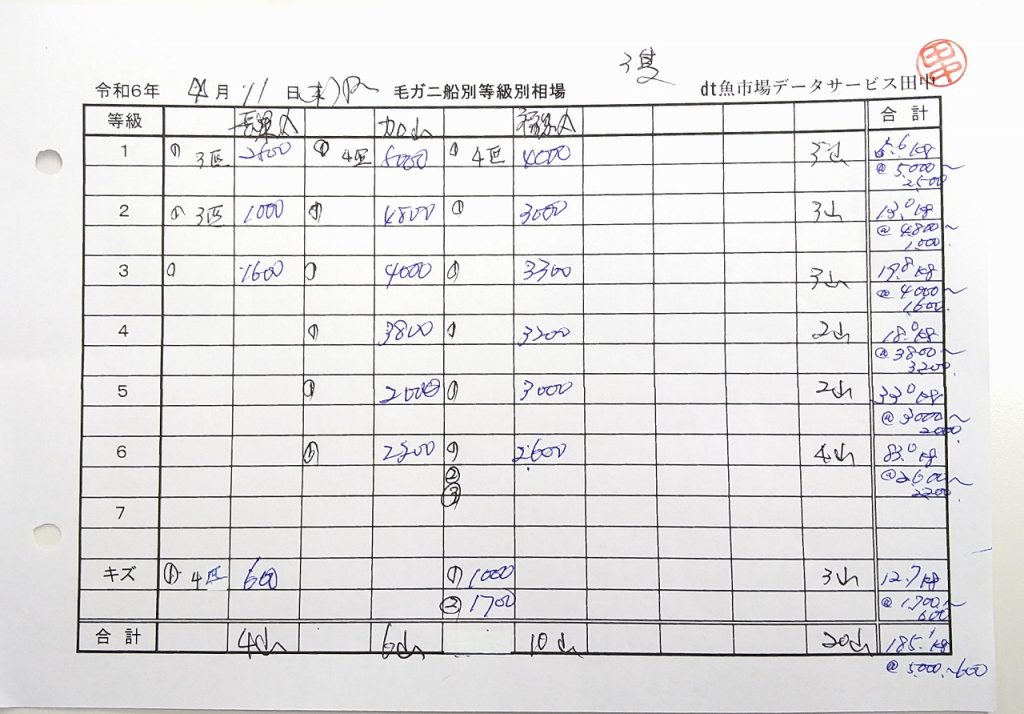 3隻
田中
令和6年 4月 11日(木) 毛ガニ船別等級別相場 dt魚市場データサービス田中
等級 合計
1 ① 3匹 2500 ① 4匹 5000 ① 4匹 4000 3山 5.6kg
@5,000〜
2500
2 ① 3匹 1000 ① 4800 ① 3000 3山 13.0kg
@4,800〜
1,000.
3 ① 1600 ① 4000 ① 3300 3山 19.8kg
@4000〜
1,600.
4 ① 3800 ① 3200 2山 18.0kg
@3800〜
3200.
5 ① 2000 ① 3000 2山 33.0kg
@3000〜
2000.
6 ① 2200 ① 2600 4山 83.0kg
② @2600〜
③ 2200.
7
キズ ① 4匹 600 ① 1000 3山 12.7kg
② 1700 @1,700〜
600.
合計 4山 6山 10山 20山 185.1kg
@5,000〜600